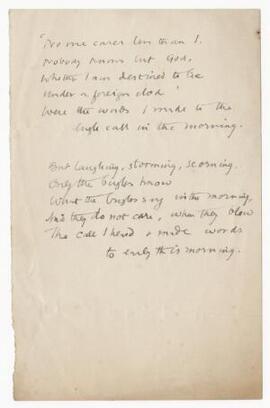 "No one cares less than I,
Nobody knows but God,
Whether I am destined to lie
Under a foreign clod"
Were the words I made to the
bugle call in the morning.
But laughing, storming, scorning,
Only the bugles know
What the bugles say in the morning,
And they do not care, when they blow
The call I heard & made words
to early this morning.